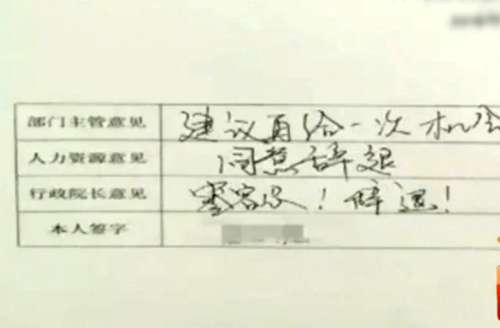 部门主管意见 建议再给一次机会
人力资源意见 同意辞退
行政院长意见 零容忍！辞退！
本人签字